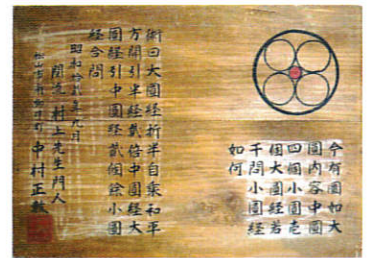 今有圖如大
圓内容中圓
四個小圓壱
個大圓経若
干問小圓経
如何
術曰大圓経折半自乗和平
方開引半経貳倍中圓経大
圓経引中圓経貳個餘小圓
経合問
昭和拾年九月
関流 村上先生門人
松山市町 中村正教